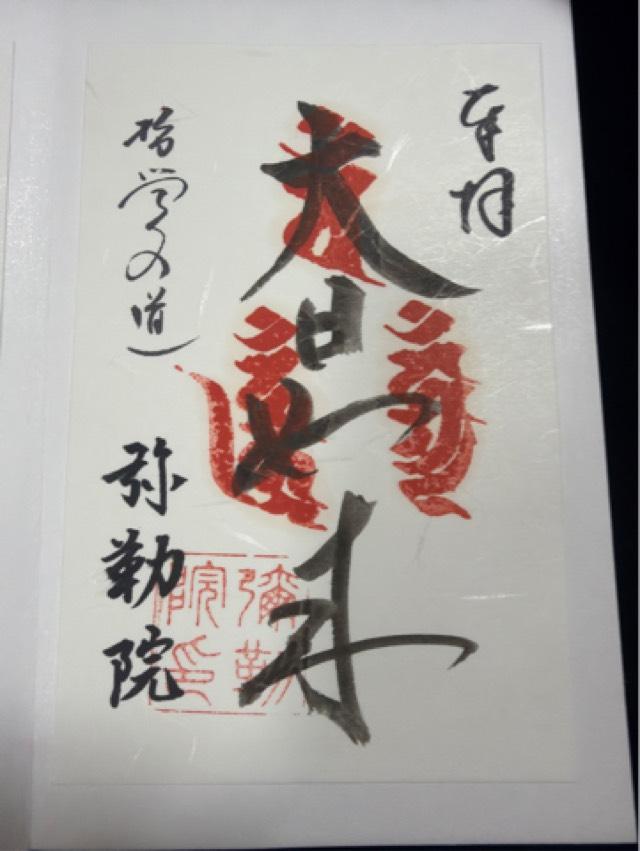 奉拝
大日如来
哲学の道
弥勒院
彌勒院印